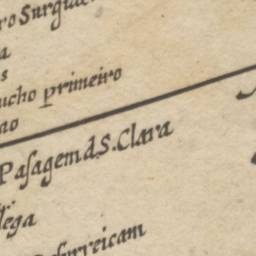 ro Surgid
a
s
ucho primeiro
ao
Pasagem d S. Clara
dega
Desurreicam